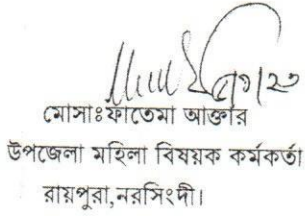 মোসাঃফাতেমা আক্তার
উপজেলা মহিলা বিষয়ক কর্মকর্তা
রায়পুরা,নরসিংদী।